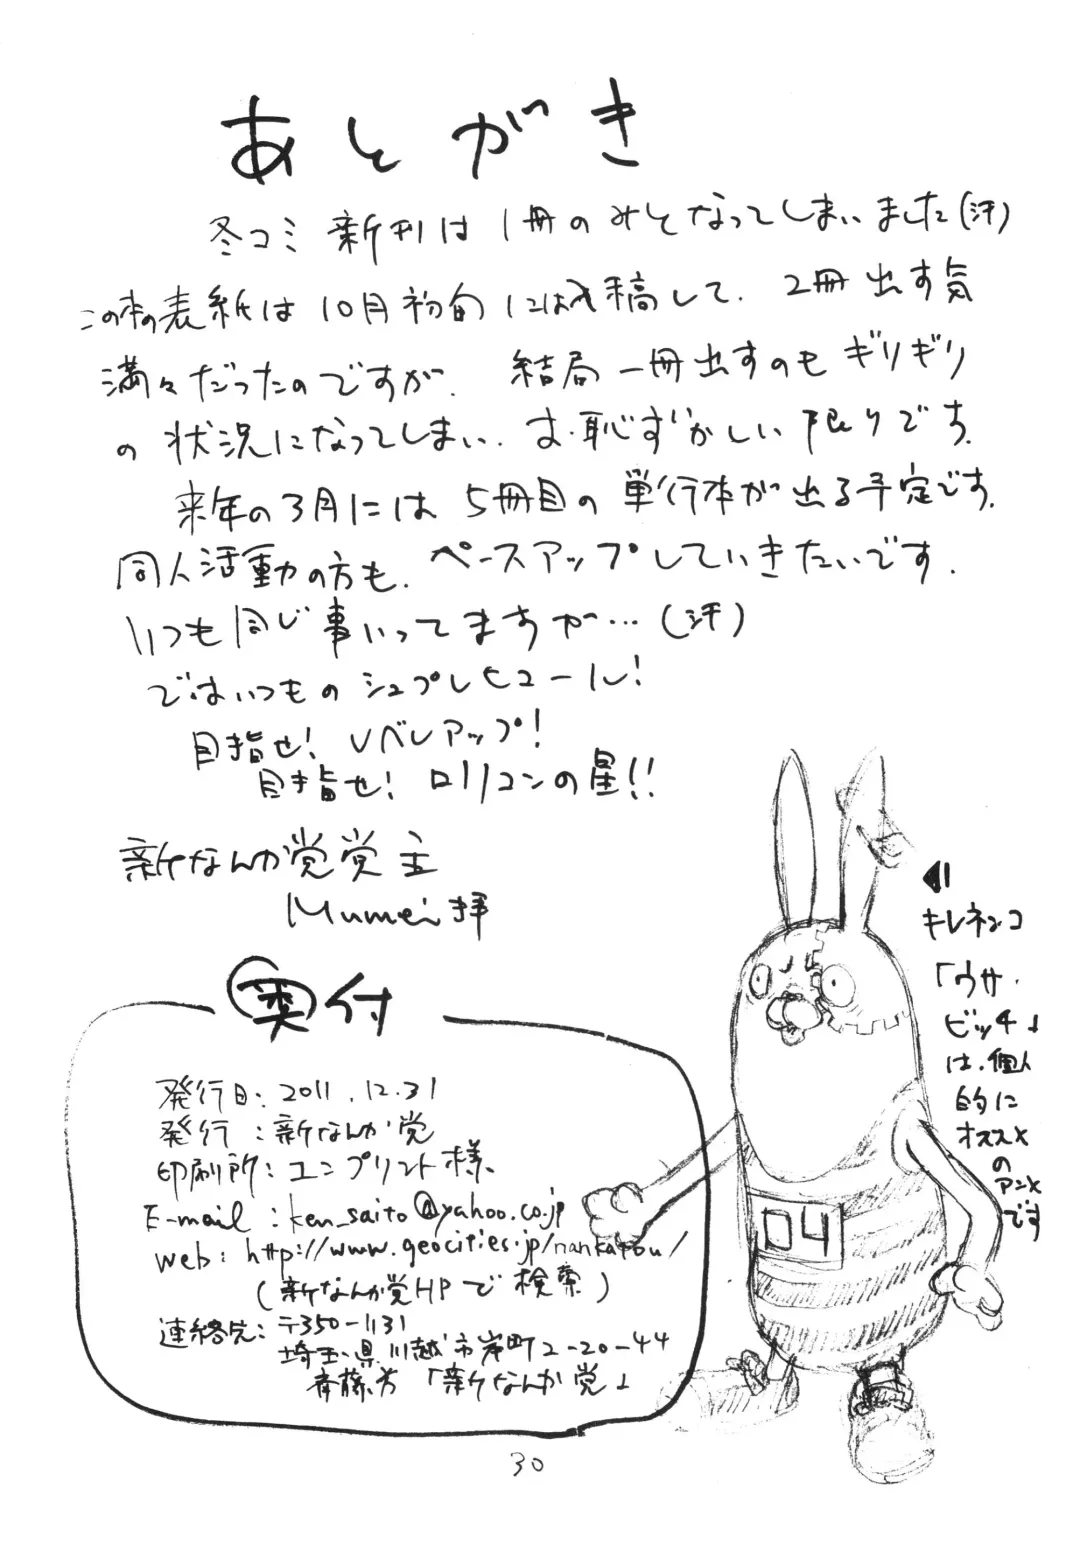 あとがき
冬コミ新刊は1冊のみとなってしまいました(汗)
この本の表紙は10月初旬には入稿して、2冊出す気
満々だったのですが、結局一冊出すのもギリギリ
の状況になってしまい、お恥ずかしい限りです。
来年の3月には5冊目の単行本が出る予定です。
同人活動の方も、ペースアップしていきたいです。
いつも同じ事いってますが…(汗)
ではいつものシュプレヒコール!
目指せ!レベルアップ!
目指せ!ロリコンの星!!
新なんか党党主
Mumei拝
◀||
キレネンコ
「ウサ・
ビッチ」
は、個人
的に
オススメ
の
アニメ
です
04
奥付
発行日:2011.12.31
発行:新なんか党
印刷所:ユンプリント様
E-mail:ken_saito@yahoo.co.jp
web:http://www.geocities.jp/nankatou/
(新なんか党HPで検索)
連絡先:〒350-1131
埼玉県川越市岸町2-20-44
斉藤方「新なんか党」
30